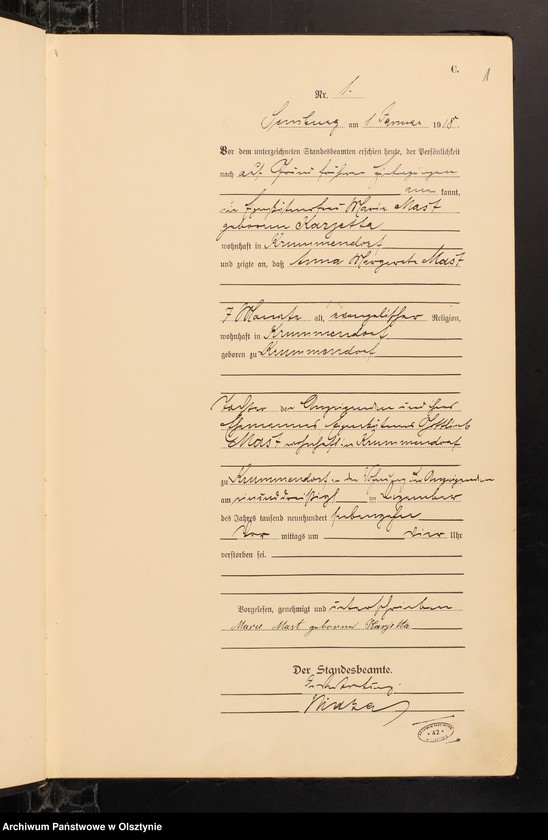 C.
1
Nr. 1.
Sensburg am 1 Januar 1918.
Vor dem unterzeichneten Standesbeamten erschien heute, der Persönlichkeit
nach auf Grund
kannt,
die Maria Mast
geborene Karzetta
wohnhaft in Krummendorf
und zeigte an, daß Anna Margarete Mast
7 Monate alt, evangelischer Religion,
wohnhaft in Krummendorf
geboren zu Krummendorf
Tochter der Anzeigenden und ihres
Ehemannes Gottlieb
Mast wohnhaft in Krummendorf
zu Krummendorf in der Wohnung der Anzeigenden
am einunddreißigsten Dezember
des Jahres tausend neunhundert siebenzehn
Vor mittags um vier Uhr
verstorben sei.
Vorgelesen, genehmigt und unterschrieben
Marie Mast geborene Karzetta
Der Standesbeamte.
In Vertretung.
42
Archiwum Państwowe w Olsztynie